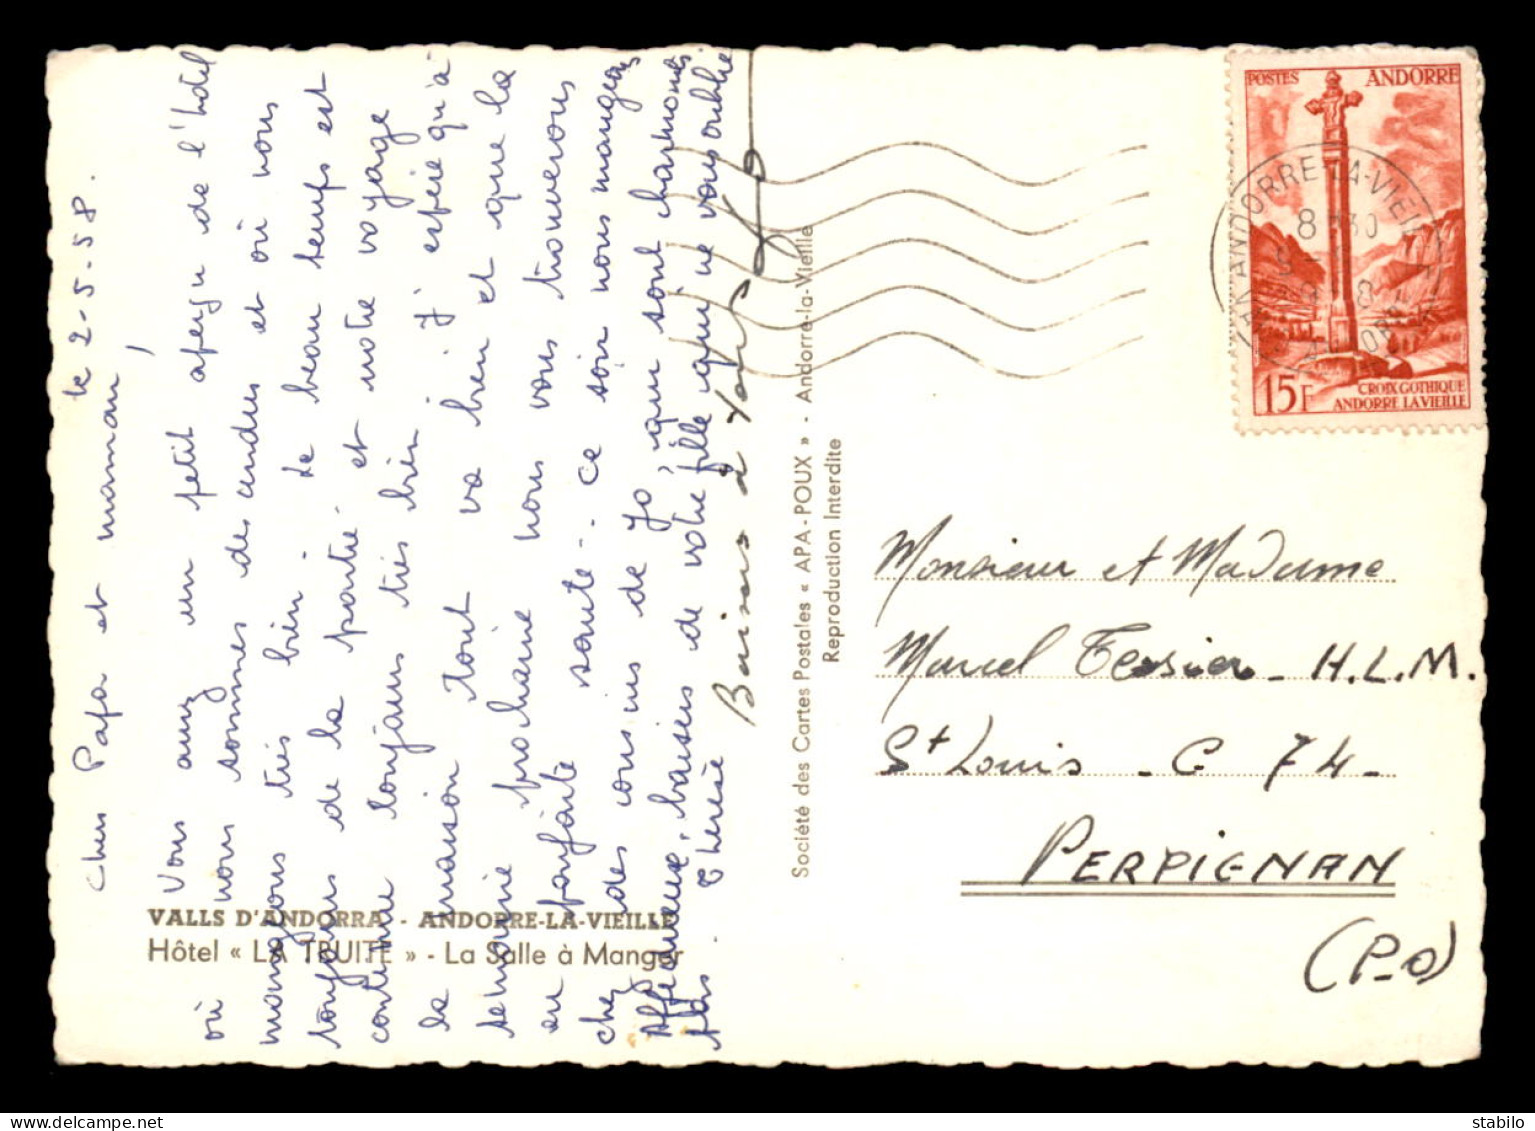 le 2-5-58.
Chers Papa et maman,
Vous avez un petit aperçu de l'hôtel
où nous sommes descendus et où nous
mangeons très bien. Le beau temps est
toujours de la partie et notre voyage
continue toujours très bien. J'espère qu'à
la maison tout va bien et que la
semaine prochaine nous vous trouverons
en parfaite santé. Ce soir nous mangeons
chez des cousins de Jo, qui sont charmants.
Affectueux baisers de votre fille qui ne vous oublie
pas. Thérèse
Baisers à vous
Jo
VALLS D'ANDORRA - ANDORRE-LA-VIEILLE
Hôtel « LA TRUITE » - La Salle à Manger
Société des Cartes Postales « APA-POUX » - Andorre-la-Vieille
Reproduction Interdite
POSTES ANDORRE
15F
CROIX GOTHIQUE
ANDORRE LA VIEILLE
ANDORRE-LA-VIEILLE
8 H30
Monsieur et Madame
Marcel Tessier - H.L.M.
St Louis - C 74 -
PERPIGNAN
(P-O)